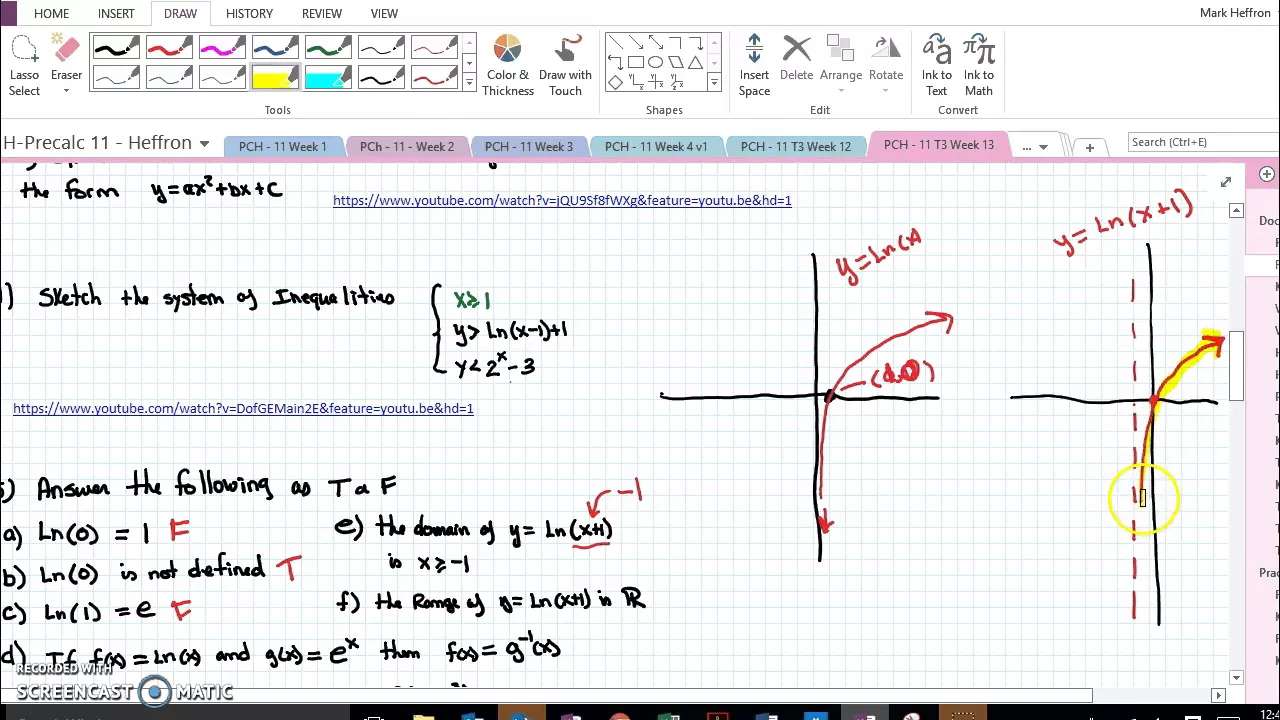 HOME INSERT DRAW HISTORY REVIEW VIEW Mark Heffron
Lasso Select
Eraser
Color & Thickness
Draw with Touch
Insert Space
Delete
Arrange
Rotate
Ink to Text
Ink to Math
Tools
Shapes
Edit
Convert
H-Precalc 11 - Heffron
PCH - 11 Week 1
PCh - 11 - Week 2
PCH - 11 Week 3
PCH - 11 Week 4 v1
PCH - 11 T3 Week 12
PCH - 11 T3 Week 13
...
Search (Ctrl+E)
the form y=ax²+bx+c
https://www.youtube.com/watch?v=jQU9Sf8fWXg&feature=youtu.be&hd=1
y=Ln(x
y=Ln(x+1)
) Sketch the system of Inequalities
x≥1
y>Ln(x-1)+1
y<2^x-3
https://www.youtube.com/watch?v=DofGEMain2E&feature=youtu.be&hd=1
) Answer the following as T or F
-1
a) Ln(0) = 1 F
b) Ln(0) is not defined T
c) Ln(1) = e F
d) If f(x)=Ln(x) and g(x)=e^x then f(x)=g⁻¹(x)
e) the domain of y= Ln(x+1)
is x≥-1
f) the Range of y=Ln(x+1) is ℝ
RECORDED WITH
SCREENCAST MATIC